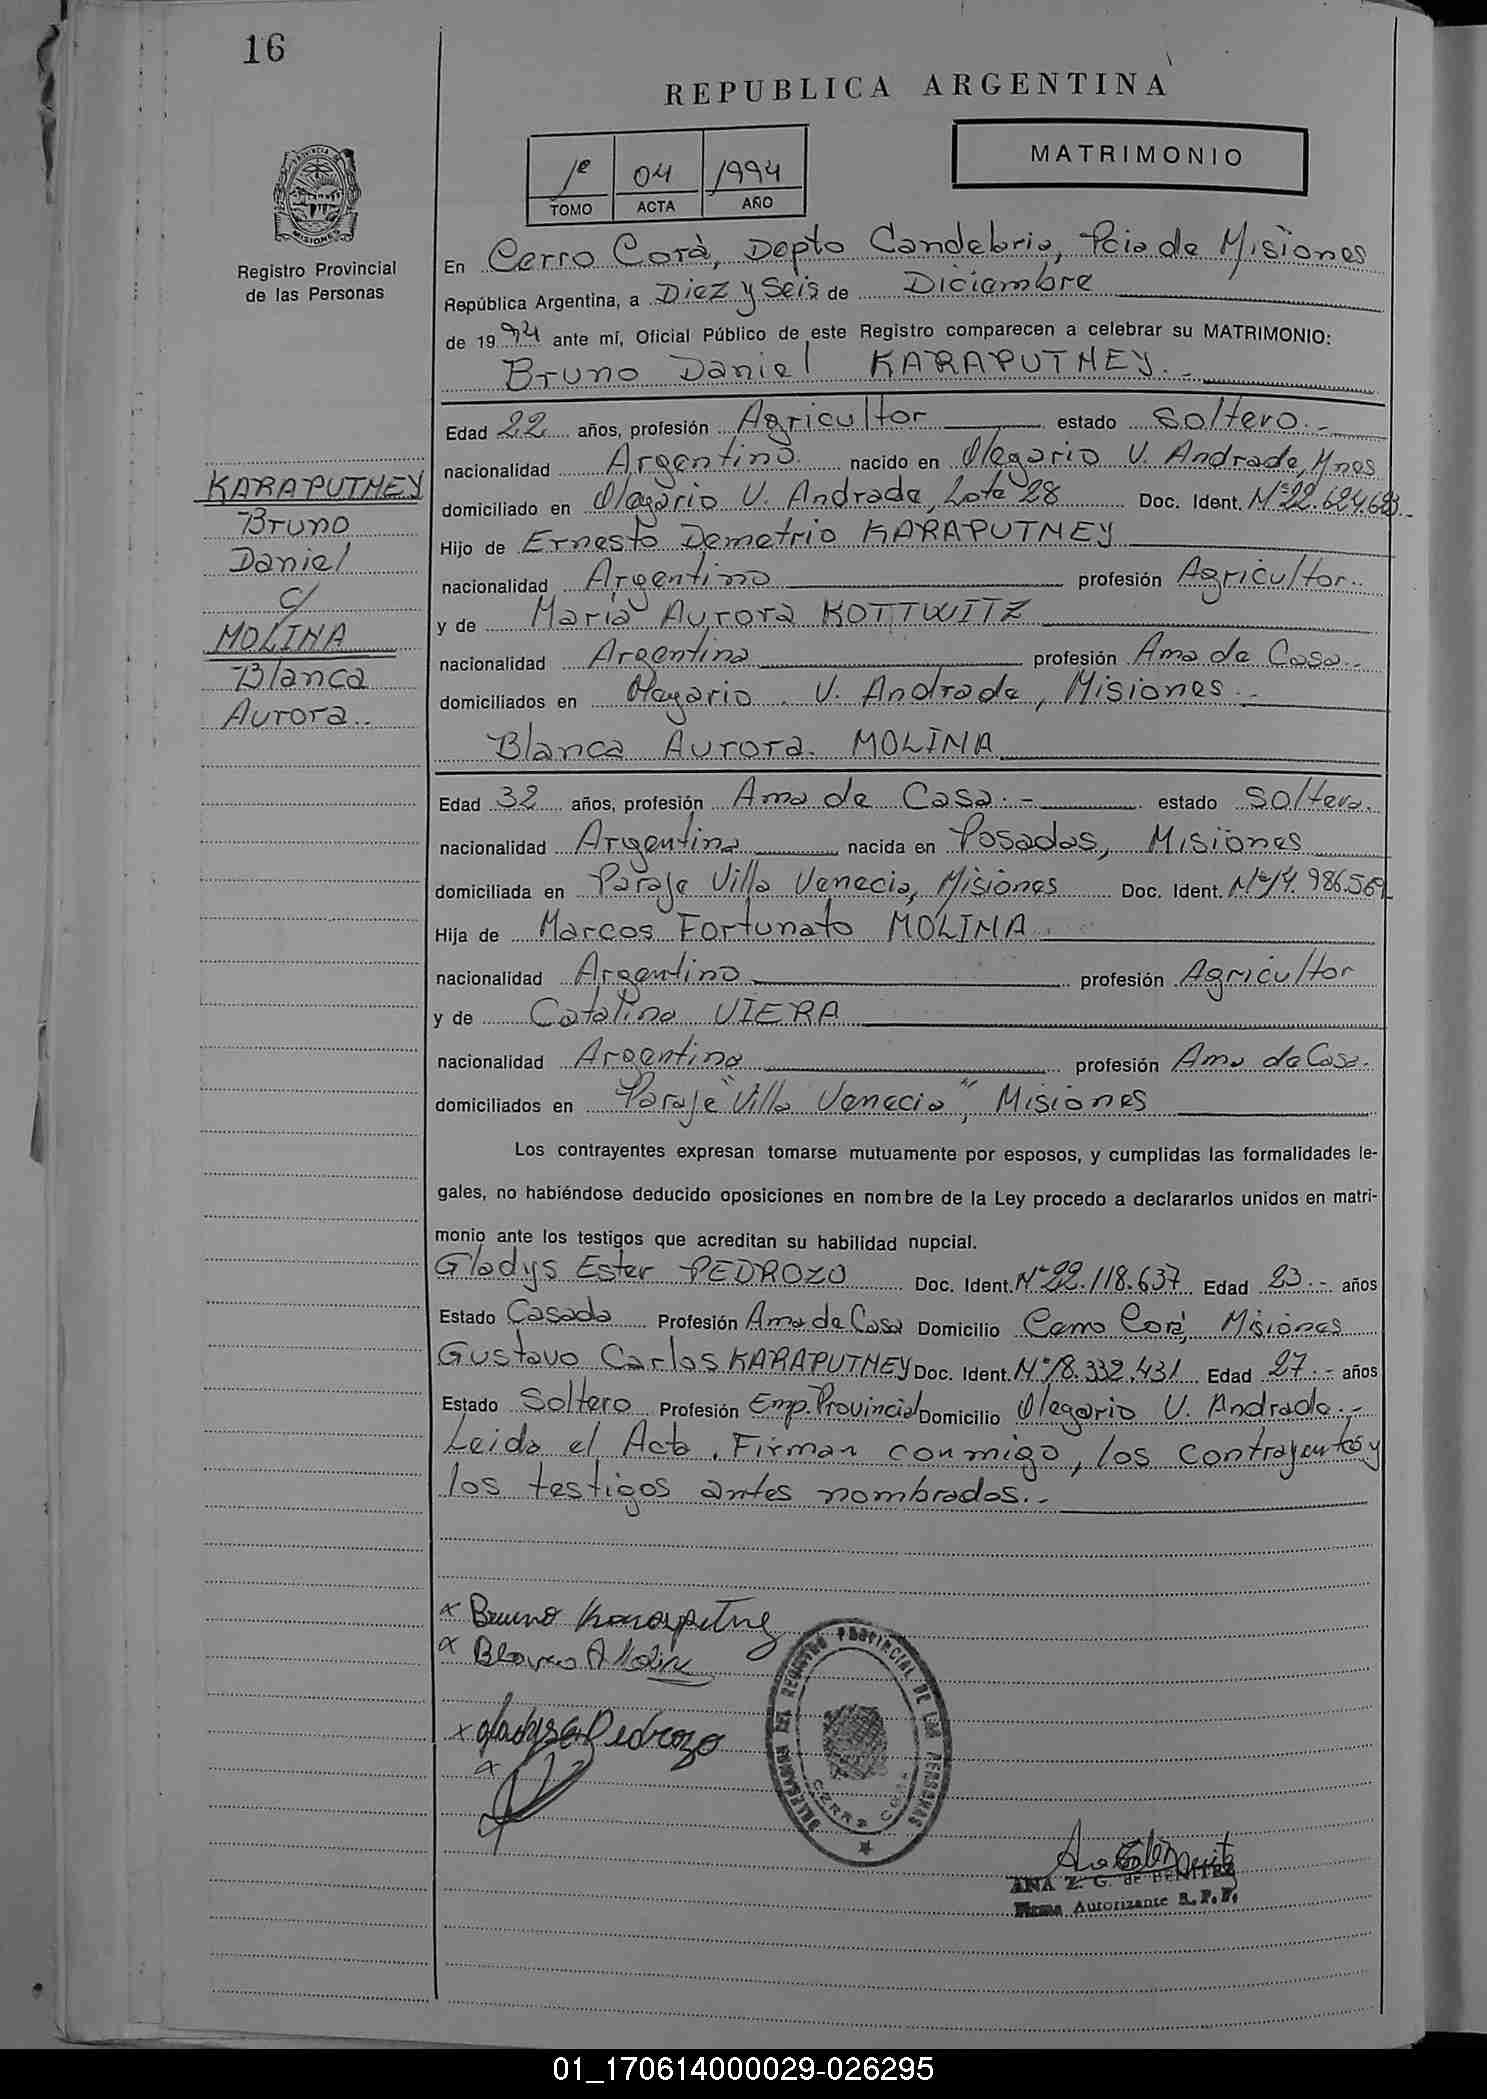 16
REPUBLICA ARGENTINA
MATRIMONIO
1º 04 1994
TOMO ACTA AÑO
PROVINCIA DE
MISIONES
Registro Provincial
de las Personas
En Cerro Corá, Depto Candelaria, Pcia de Misiones
República Argentina, a Diez y Seis de Diciembre
de 1994 ante mí, Oficial Público de este Registro comparecen a celebrar su MATRIMONIO:
Bruno Daniel KARAPUTNEY.-
Edad 22 años, profesión Agricultor estado Soltero.-
nacionalidad Argentino. nacido en Olegario V. Andrade, Mnes
domiciliado en Olegario V. Andrade, Lote 28 Doc. Ident. Nº22.624.623.-
Hijo de Ernesto Demetrio KARAPUTNEY
nacionalidad Argentino profesión Agricultor..
y de María Aurora KOTTWITZ
nacionalidad Argentina profesión Ama de Casa..
domiciliados en Olegario V. Andrade, Misiones.-
KARAPUTNEY
Bruno
Daniel
c/
MOLINA
Blanca
Aurora..
Blanca Aurora. MOLINA
Edad 32 años, profesión Ama de Casa.- estado Soltera.
nacionalidad Argentina nacida en Posadas, Misiones
domiciliada en Paraje Villa Venecia, Misiones Doc. Ident. Nº14.986.569
Hija de Marcos Fortunato MOLINA
nacionalidad Argentino profesión Agricultor
y de Catalina VIERA
nacionalidad Argentina profesión Ama de Casa.
domiciliados en Paraje "Villa Venecia", Misiones
Los contrayentes expresan tomarse mutuamente por esposos, y cumplidas las formalidades le-
gales, no habiéndose deducido oposiciones en nombre de la Ley procedo a declararlos unidos en matri-
monio ante los testigos que acreditan su habilidad nupcial.
Gladys Ester PEDROZO Doc. Ident. Nº22.118.637 Edad 23.- años
Estado Casada Profesión Ama de Casa Domicilio Cerro Corá, Misiones
Gustavo Carlos KARAPUTNEY Doc. Ident. Nº18.332.431 Edad 27.- años
Estado Soltero Profesión Emp. Provincial Domicilio Olegario V. Andrade.-
Leida el Acta, Firman conmigo, los contrayentes y
los testigos antes nombrados.-
x Bruno Karaputney
x Blanca A Molina
x Gladys E Pedrozo
x
DELEGACION DEL REGISTRO PROVINCIAL DE LAS PERSONAS
CERRO CORA
ANA Z. G. de BENITEZ
Firma Autorizante R. P. P.
01_170614000029-026295